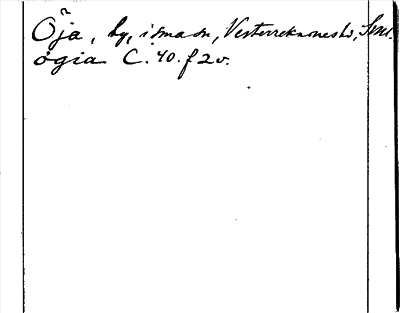 Öja, by, i sma sn, Vesterrekarnes hd, Söml.
ögia C. 40. f 2 v.